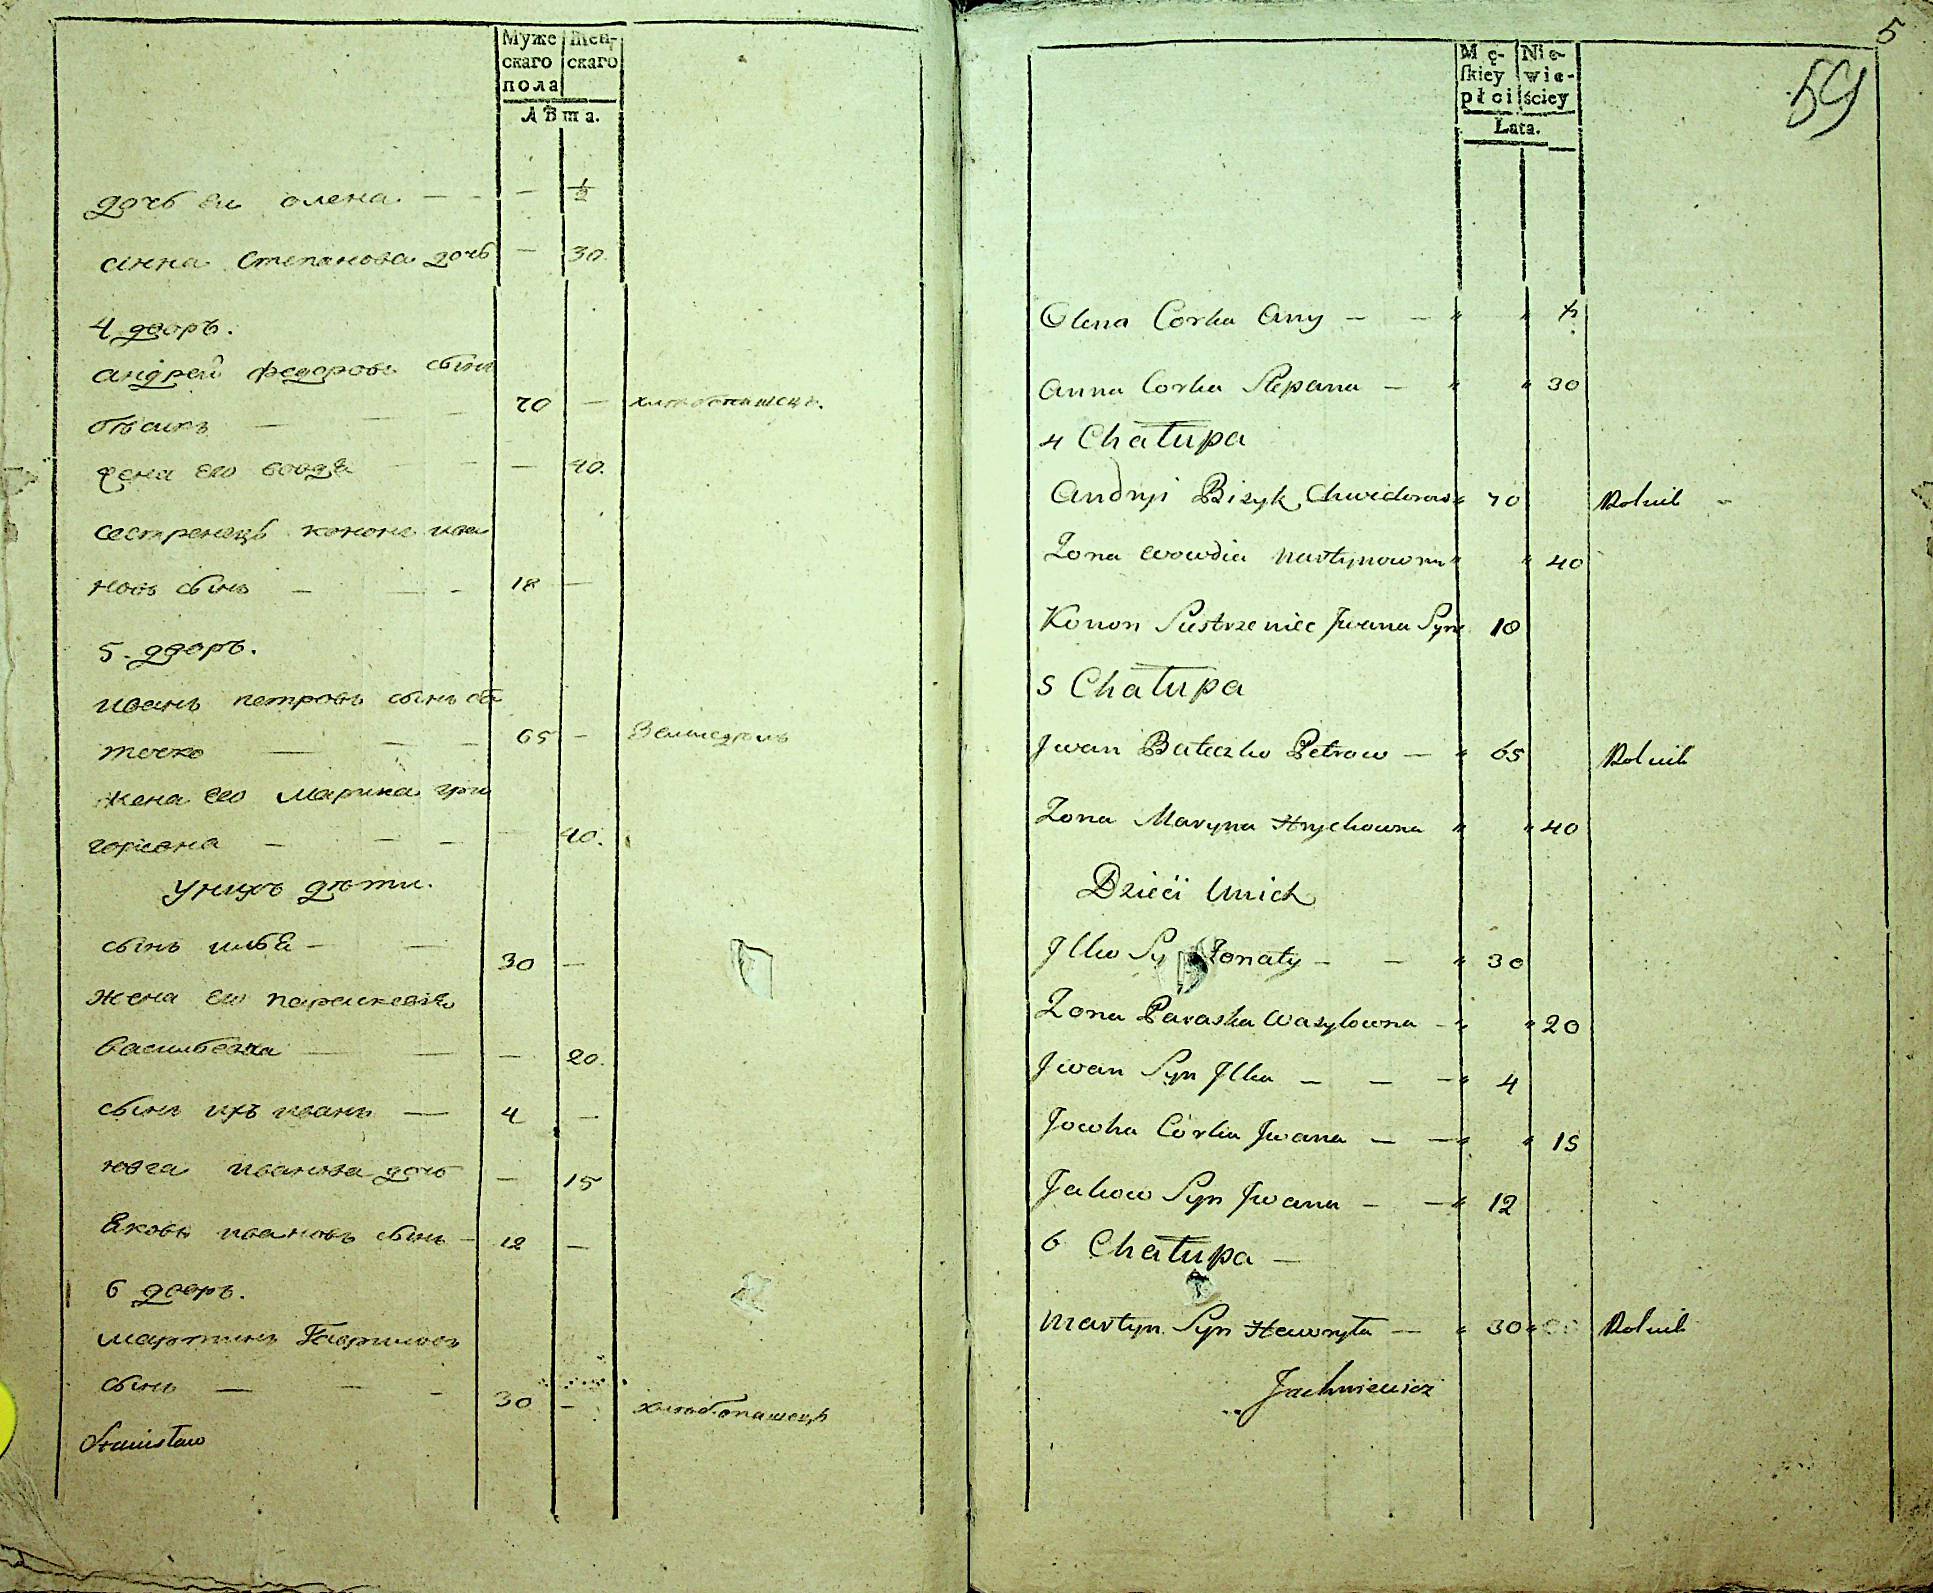 Муже
скаго
пола
Жен-
скаго
лѣта.
дочь еи олена — — — ½
анна Степанова дочь — 30.
4 дворъ.
андрей федоровъ сынъ
70 — хлѣбопашецъ.
жена его — — — 40.
сестренецъ кононъ ива
новъ сынъ — — - 18 —
5. дворъ.
иванъ петровъ сынъ ба
течко — — — 65 — Земледѣль
жена его марина гри
горьевна — — — 40.
у нихъ дѣти.
сынъ илья — — 30 —
жена его параскевія
васильевна — — — 20.
сынъ ихъ иванъ — 4 —
юзга иванова дочь — 15
яковъ ивановъ сынъ — 12 —
6 дворъ.
мартинъ Гавриловъ
сынъ — — - 30 — хлѣбопашецъ
Stanisław
5
59
Mę-
ſkiey
płci
Nie-
wie-
ściey
Lata.
Olena Corka Any — — " " ½
Anna Corka Stepana — " " 30
4 Chałupa
Andryi Bizyk Chwidorow " 70 Rolnik -
Żona Wowdia Martynowna " " 40
Konon Siestrzeniec Jwana Syn 18
5 Chałupa
Jwan Bateczko Petrow — " 65 Rolnik
Żona Maryna Hrychowna " " 40
Dzieci Unich
Jlko Sy Żonaty — — " 30
Żona Paraska Wasylowna — " " 20
Jwan Syn Jlka — — — " 4
Jowha Córka Jwana — — " " 15
Jakow Syn Jwana — — " 12
6 Chałupa —
Martyn Syn Hawryła — " 30 " Rolnik
Jachniewicz